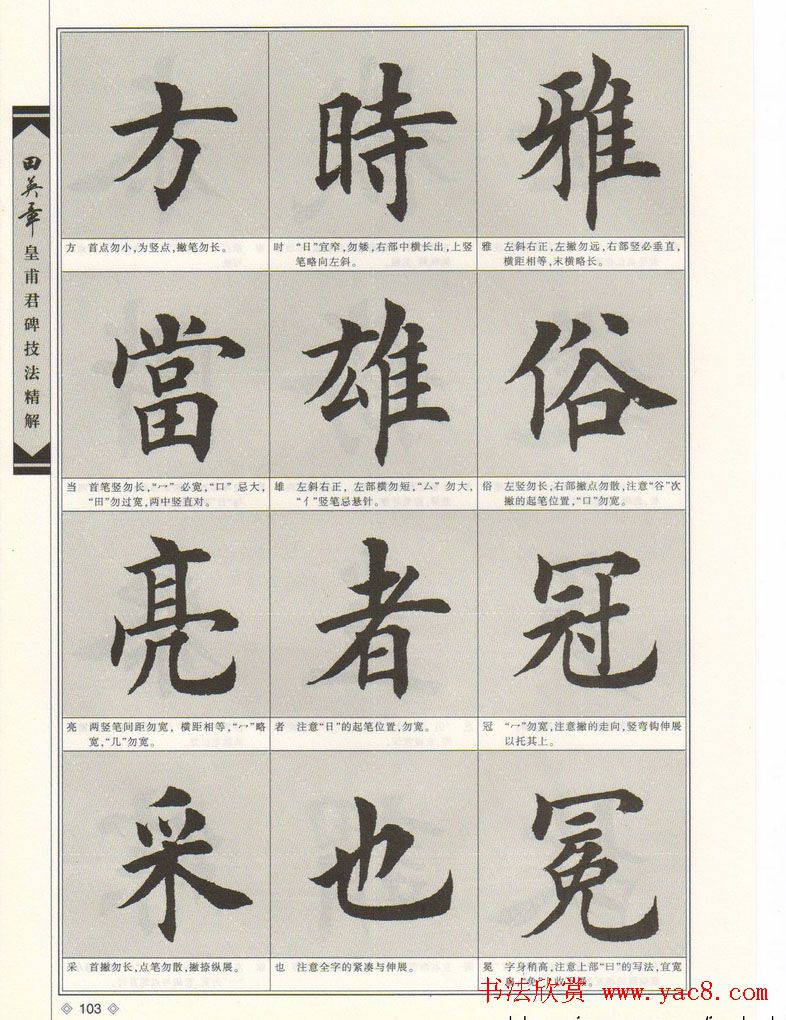 田英章
皇甫君碑技法精解
方 時 雅
方 首点勿小,为竖点,撇笔勿长。
时 “日”宜窄,勿矮,右部中横长出,上竖
笔略向左斜。
雅 左斜右正,左撇勿远,右部竖必垂直,
横距相等,末横略长。
當 雄 俗
当 首笔竖勿长,“冖”必宽,“口”忌大,
“田”勿过宽,两中竖直对。
雄 左斜右正,左部横勿短,“厶”勿大,
“亻”竖笔忌悬针。
俗 左竖勿长,右部撇点勿散,注意“谷”次
撇的起笔位置,“口”勿宽。
亮 者 冠
亮 两竖笔间距勿宽,横距相等,“冖”略
宽,“几”勿宽。
者 注意“日”的起笔位置,勿宽。
冠 “冖”勿宽,注意撇的走向,竖弯钩伸展
以托其上。
采 也 冕
采 首撇勿长,点笔勿散,撇捺纵展。
也 注意全字的紧凑与伸展。
冕 字身稍高,注意上部“曰”的写法,宜宽
书法欣赏 www.yac8.com
103